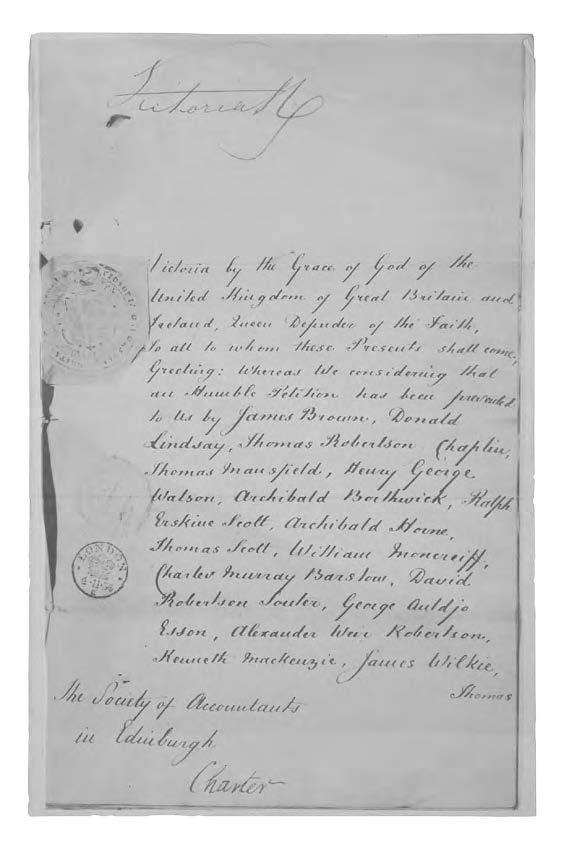 Victoria R
Victoria by the Grace of God of the
United Kingdom of Great Britain and
Ireland, Queen Defender of the Faith,
To all to whom these Presents shall come,
Greeting: Whereas We considering that
an Humble Petition has been presented
to Us by James Brown, Donald
Lindsay, Thomas Robertson Chaplin,
Thomas Mansfield, Henry George
Watson, Archibald Borthwick, Ralph
Erskine Scott, Archibald Horne,
Thomas Scott, William Moncreiff,
Charles Murray Barstow, David
Robertson Souter, George Auldjo
Esson, Alexander Weir Robertson,
Kenneth Mackenzie, James Wilkie,
Thomas
The Society of Accountants
in Edinburgh
Charter
LONDON